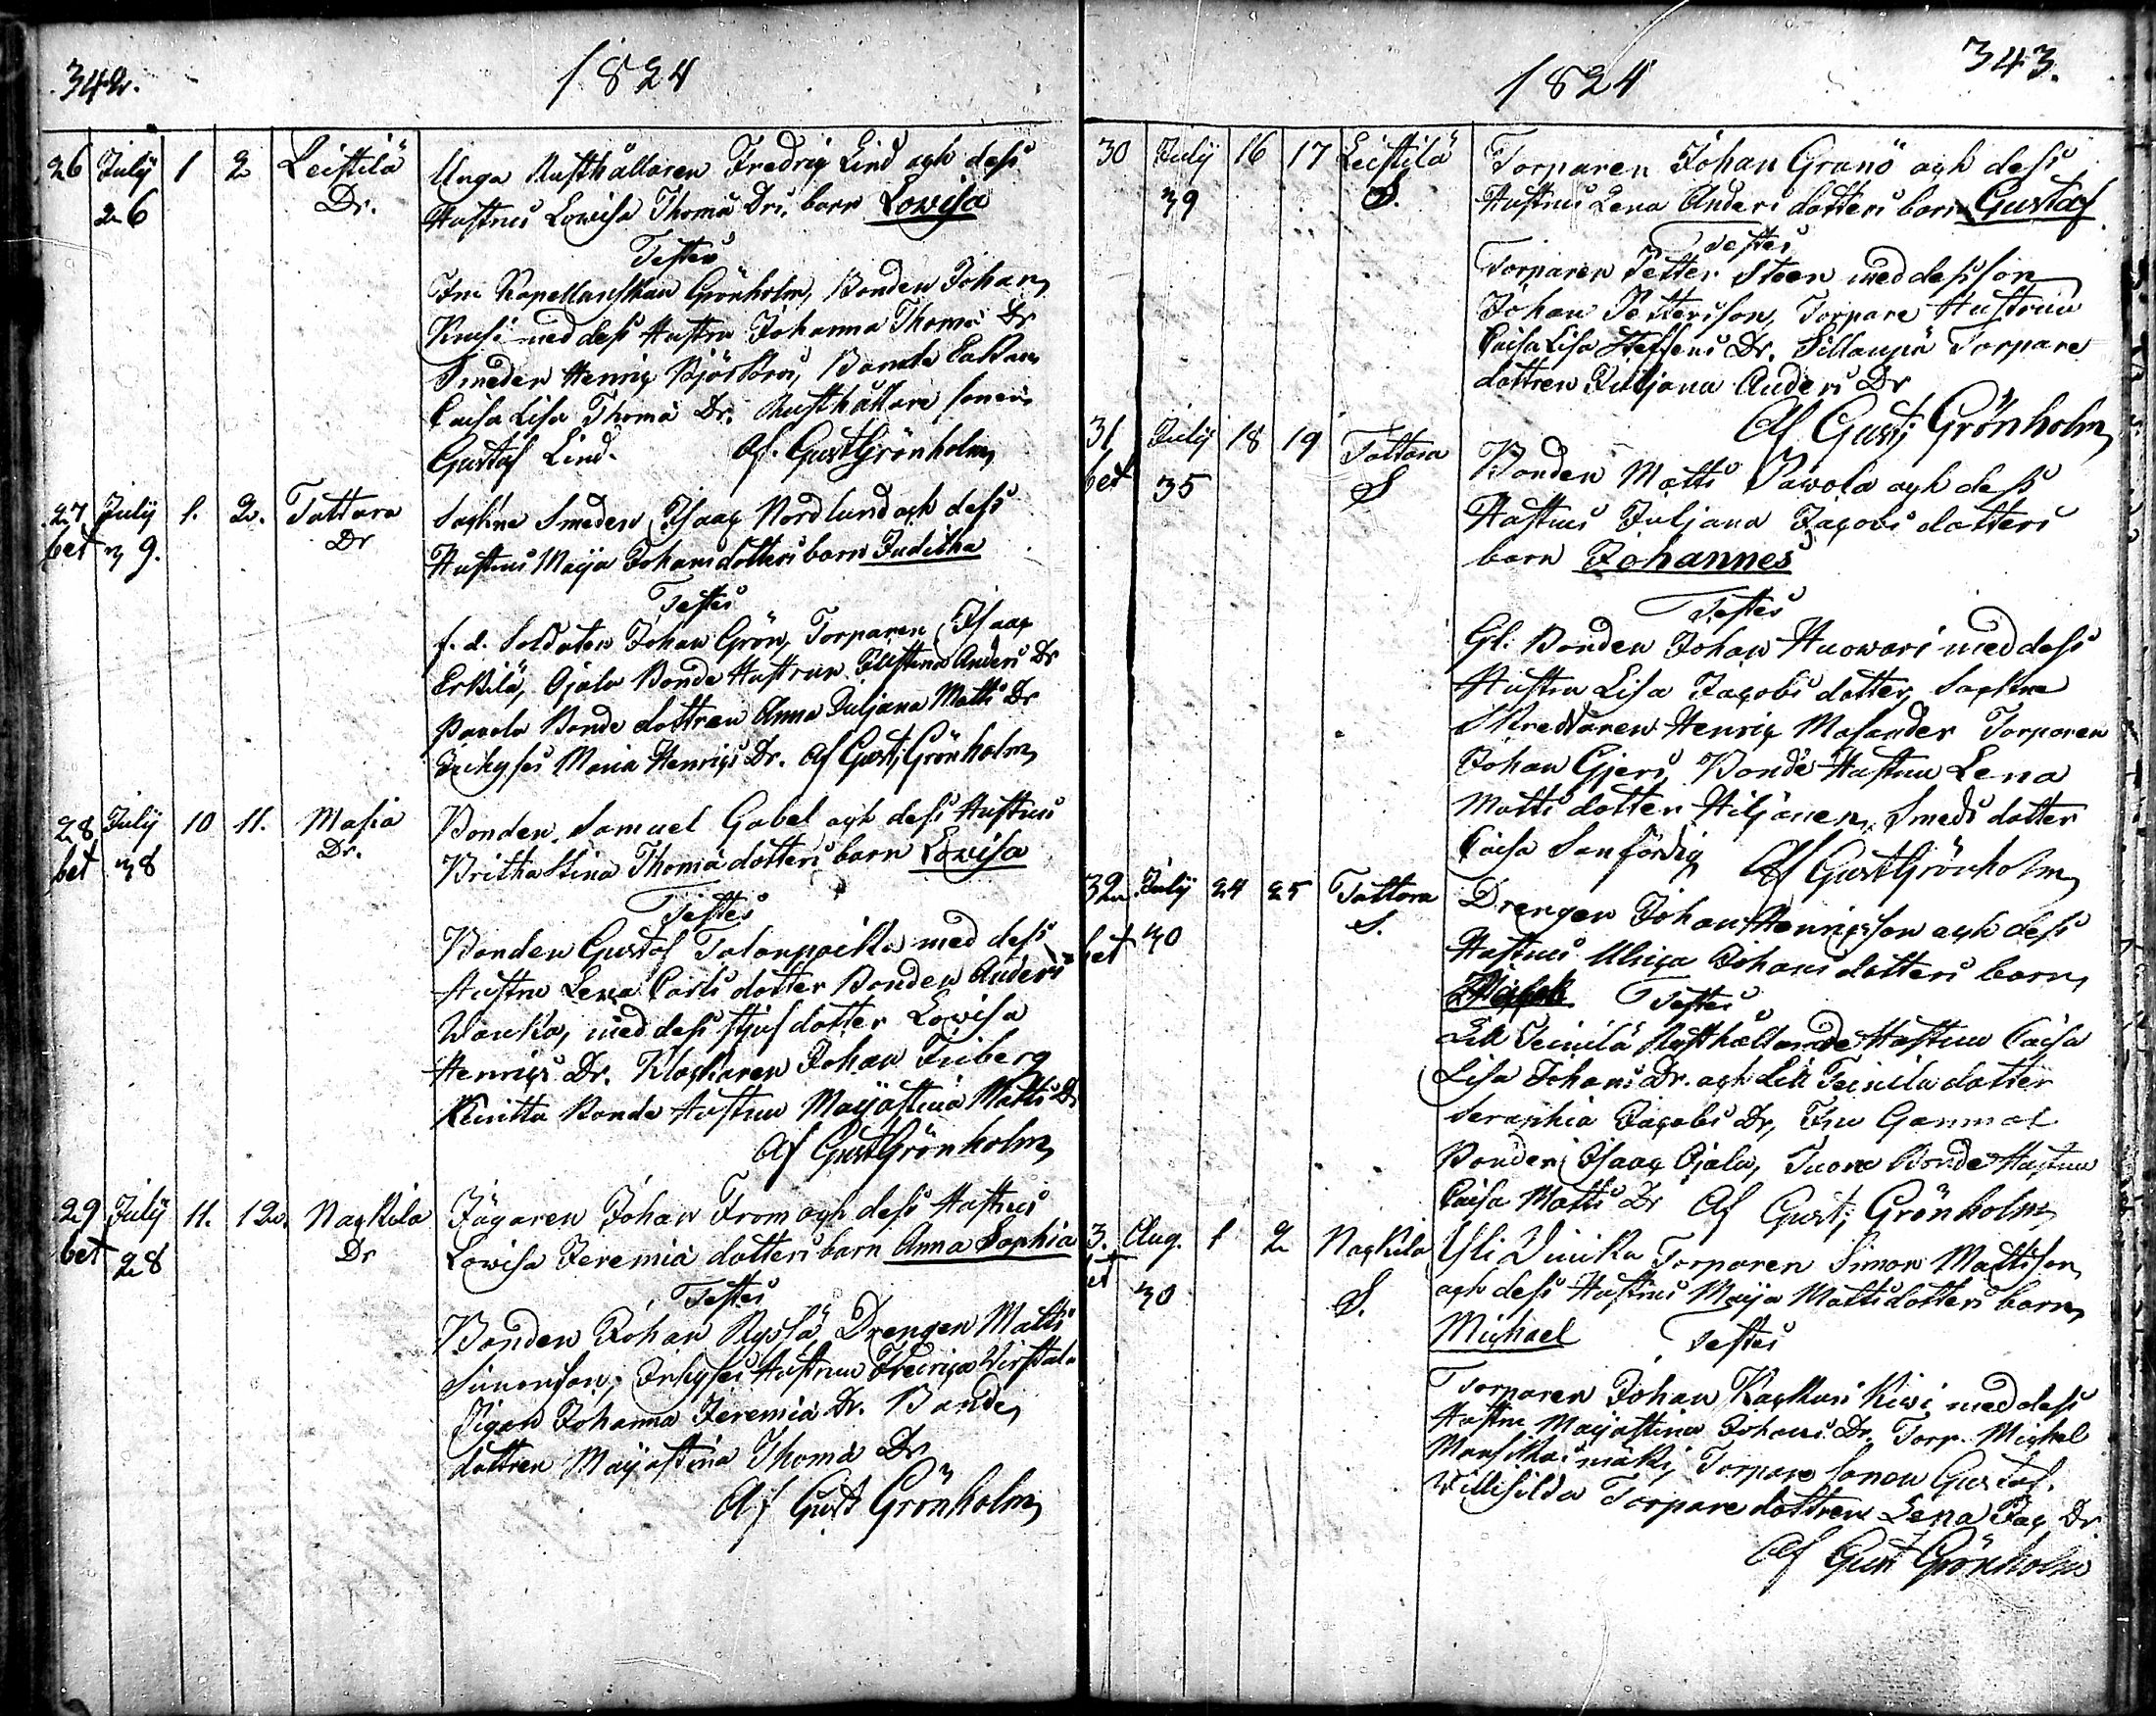 342.
1824
26 July 1 2 Leistilä Unga Rusthållaren Fredric Lind och dess
26 Dr. Hustrus Lowisa Thomä Drs. barn Lowisa
Testes
Fru Kapellanskan Grönholm, Bonden Johan
med dess Hustru Johanna Thomä Dr
Smeden Henric Björkbru, Bonde
Caisa Lisa Thomä Dr. Rusthållare sonen
Gustaf Lind. Af. Gust Grönholm
27 July 1. 2. Tattara Sockne Smeden Isaac Nordlund och dess
bet 39. Dr Hustrus Maja Johans dotters barn Juditha
Testes
f. d. Soldaten Johan Grön, Torparen Isaac
Erkilä, Ojala Bonde Hustrun Christina Anders Dr
Pavola Bonde dottren Anna Juljana Matts Dr
Maria Henrics Dr. Af Gust; Grönholm
28 July 10 11. Masia Bonden Samuel Gabel och dess Hustrus
bet 38 Dr. Britha Stina Thomä dotters barn Lowisa
Testes
Bonden Gustaf Talonpoika med dess
Hustru Lena Carls dotter Bonden Anders
Wanka, med dess styfdotter Lovisa
Henrics Dr. Klockaren Johan Friberg
Bonde Hustrun Majastina Matts Dr
Af Gust Grönholm
29 July 11. 12. Nackila Jägaren Johan From och dess Hustrus
bet 28 Dr Lovisa Jeremiä dotters barn Anna Sophia
Testes
Bonden Johan Ryssä, Drengen Matts
Simonson, Inhyses Hustrun
Pigan Johanna Jeremiä Dr. Bonde
dottren Majastina Thomä Dr
Af Gust Grönholm
343.
1824
30 July 16 17 Leistilä Torparen Johan Granö och dess
39 S. Hustrus Lena Anders dotters barn Gustaf
Testes
Torparen Petter Steen med dess son
Johan Petterson, Torpare Hustrun
Caisa Lisa Steffens Dr. Sillanpä Torpare
dottren Juljana Anders Dr
Af Gust; Grönholm
31 July 18 19 Tattara Bonden Matts Pawola och dess
bet 35 S Hustrus Juljana Jacobs dotters
barn Johannes
Testes
Gl. Bonden Johan Huowari med dess
Hustru Lisa Jacobs dotter, Sockne
Skreddaren Henric Masander Torparen
Johan Gjers, Bonde Hustrun Lena
Matts dotter Hiljanen, Smeds dotter
Caisa Sanfördig Af Gust Grönholm
32 July 24 25 Tattara Drengen Johan Henricsson och dess
bet 30 S. Hustrus Ulrica Johans dotters barn
Testes
Lill Teinilä Rusthållare Hustrun Caisa
Lisa Johans Dr. och Lill Teinilä dotter
Seraphia Jacobs Dr, Fru Gammal
Bonden Isaac Ojala, Bonde Hustrun
Caisa Matts Dr Af Gust; Grönholm
3. Aug. 1 2 Nackila Yli Vinika Torparen Simon Mattsson
bet 30 S. och dess Hustrus Maja Matts dotters barn
Michael Testes
Torparen Johan Kackuri Kiwi med dess
Hustru Majastina Johans Dr. Torp. Michel
Torpare sonen Gustaf
Torpare dottren Lena Jac. Dr
Af Gust Grönholm